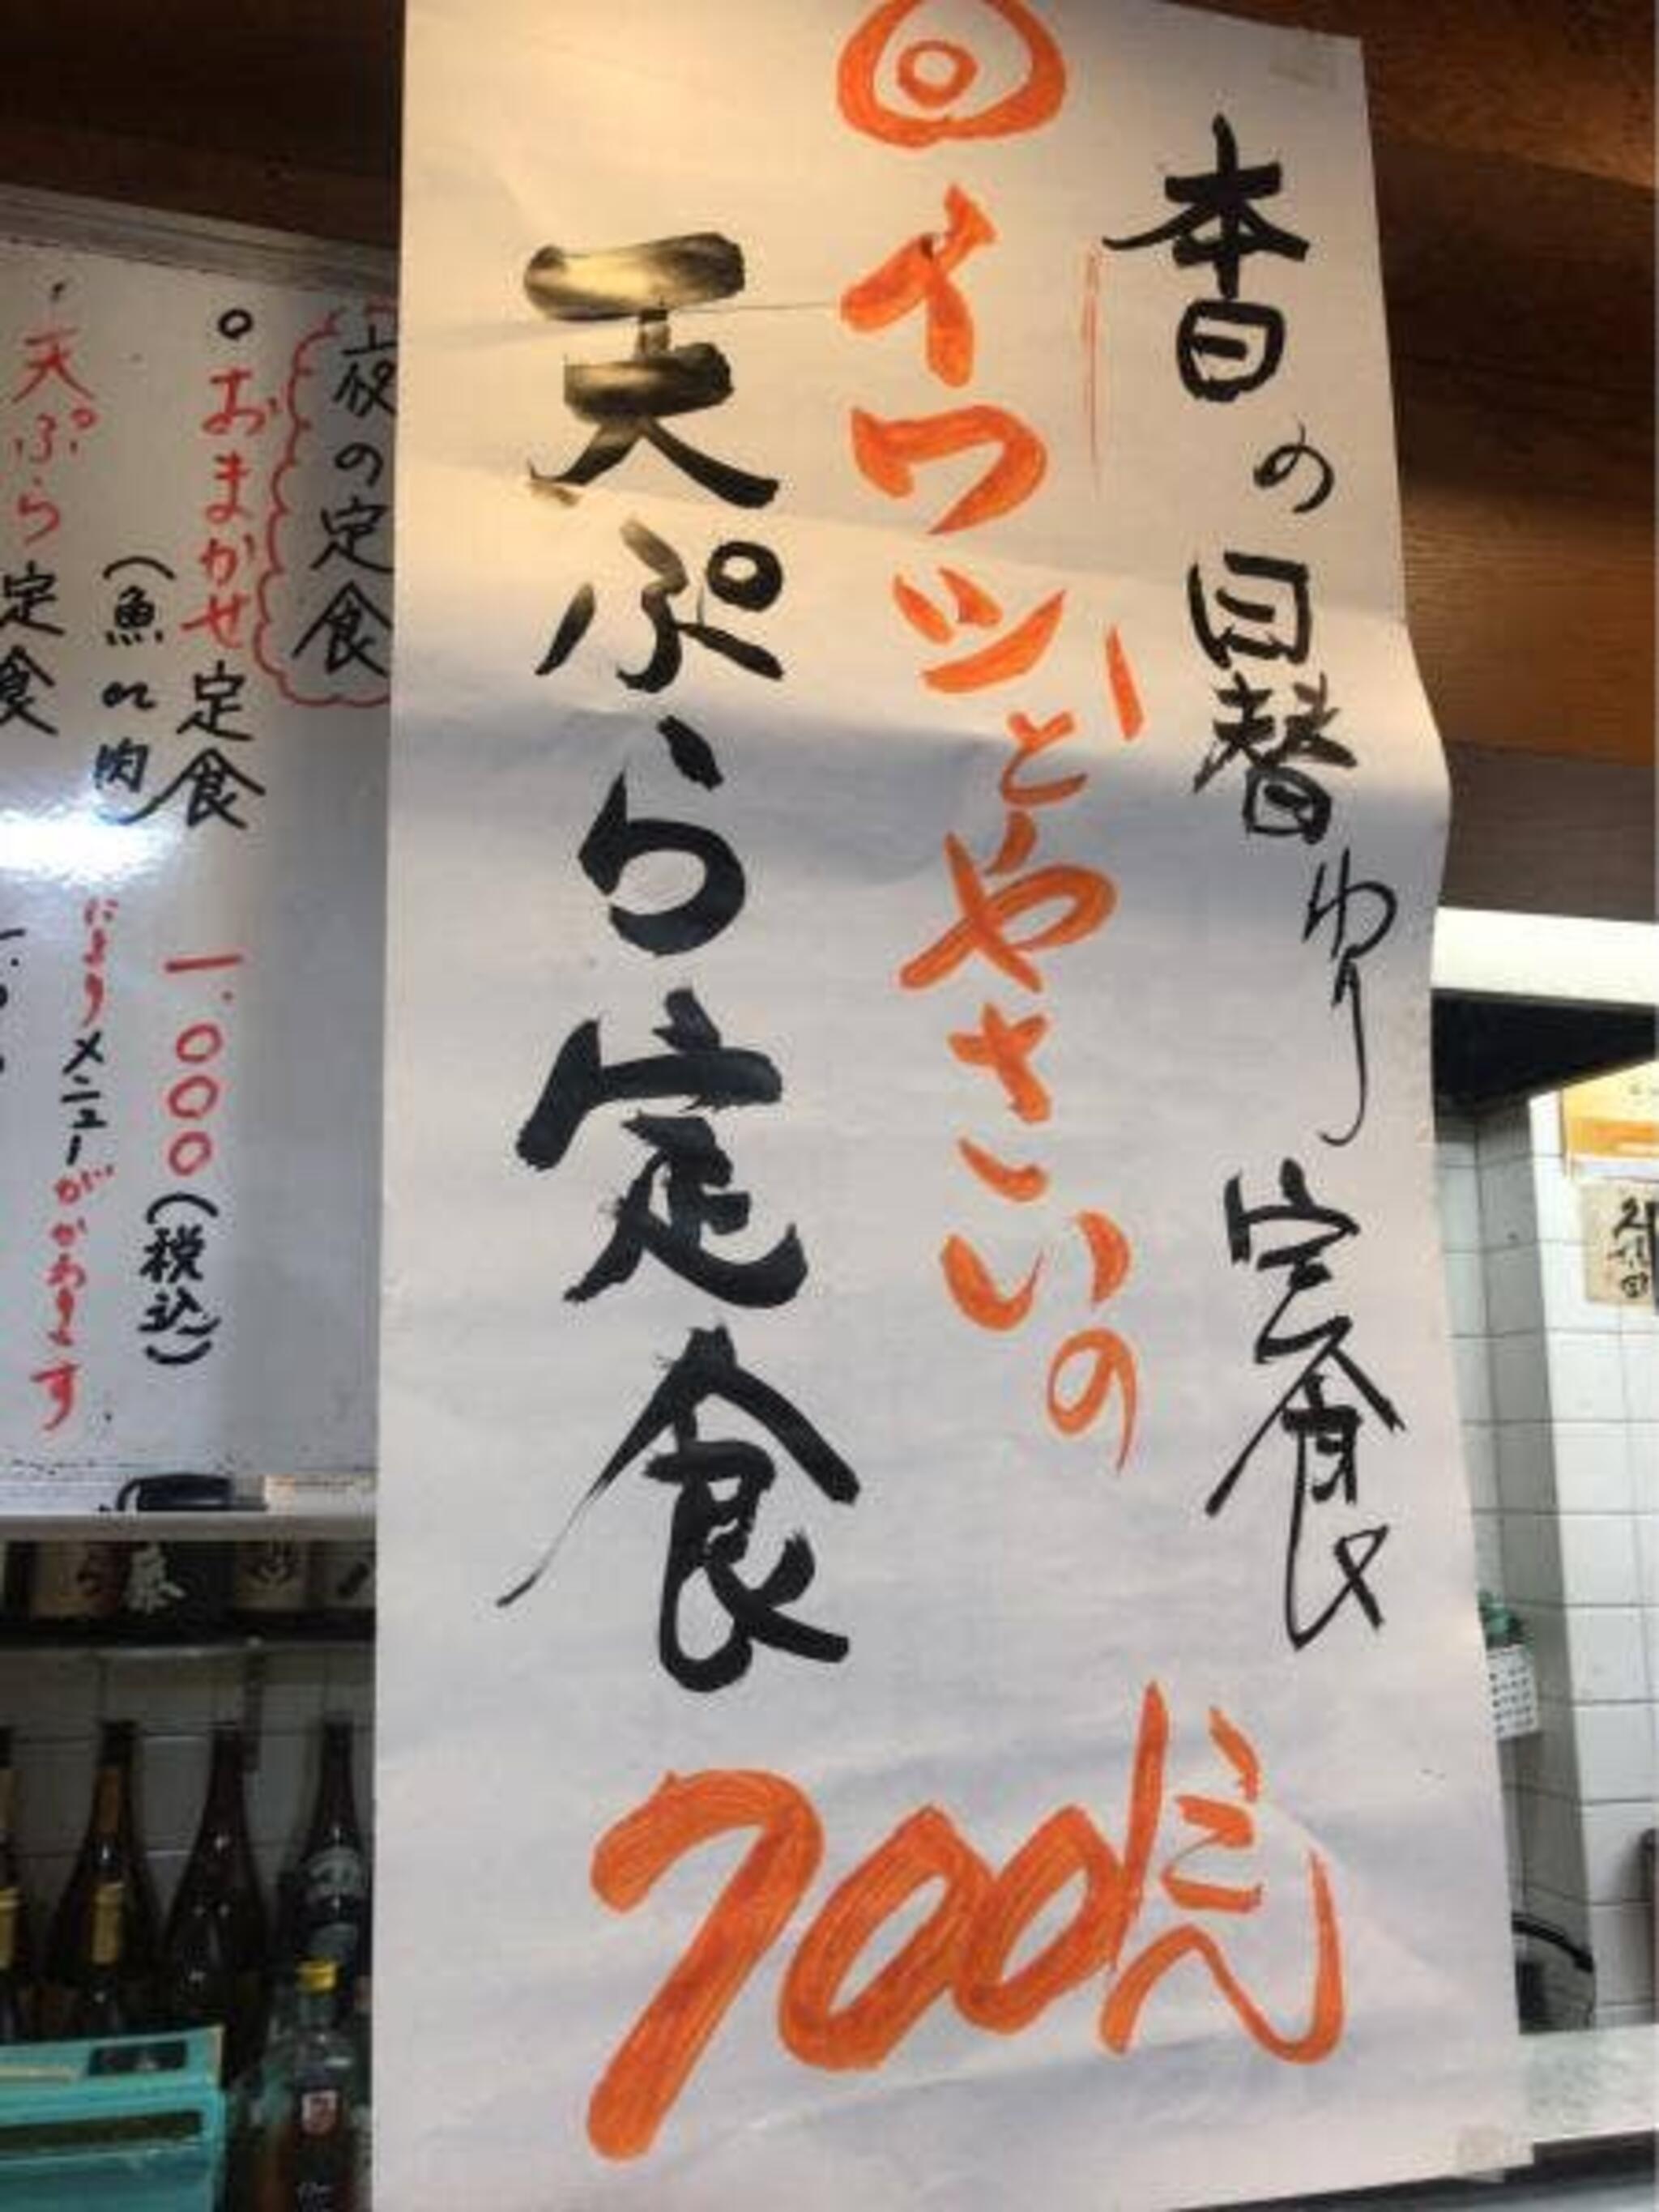 本日の日替わり定食
◎イワシとやさいの
天ぷら定食
700円
夜の定食
○おまかせ定食 一.〇〇〇(税込)
(魚or肉)
によりメニューがかわります
・天ぷら定食